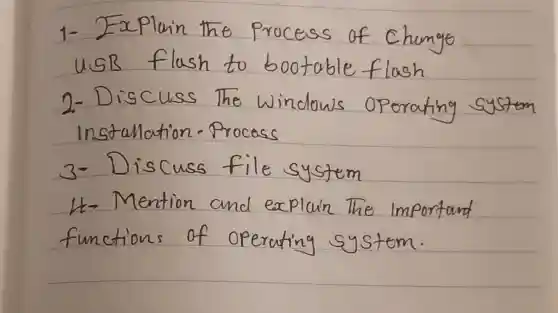 1- Explain the Process of Change
USB flash to bootable flash
2- Discuss The windows operating system
Installation - Process
3- Discuss file system
4- Mention and explain The Important
functions of operating system.